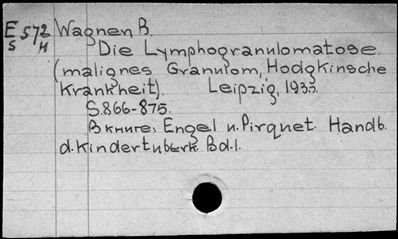 E 572 Wagner B.
S H Die Lymphogranulomatose.
(malignes Granulom, Hodgkinsche
Krankheit). Leipzig, 1933.
S.866-875.
В книге: Engel u. Pirquet. Handb.
d. Kindertuberk. Bd. 1.